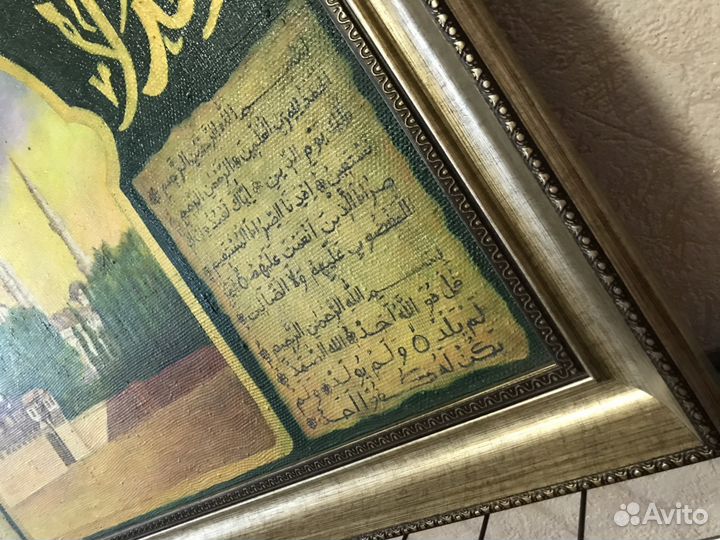 بسم الله الرحمن الرحيم
الحمد لله رب العلمين الرحمن الرحيم
ملك يوم الدين إياك نعبد وإياك
نستعين اهدنا الصراط المستقيم
صراط الذين أنعمت عليهم غير
المغضوب عليهم ولا الضالين
بسم الله الرحمن الرحيم
قل هو الله أحد الله الصمد
لم يلد ولم يولد ولم
يكن له كفوا أحد
Avito